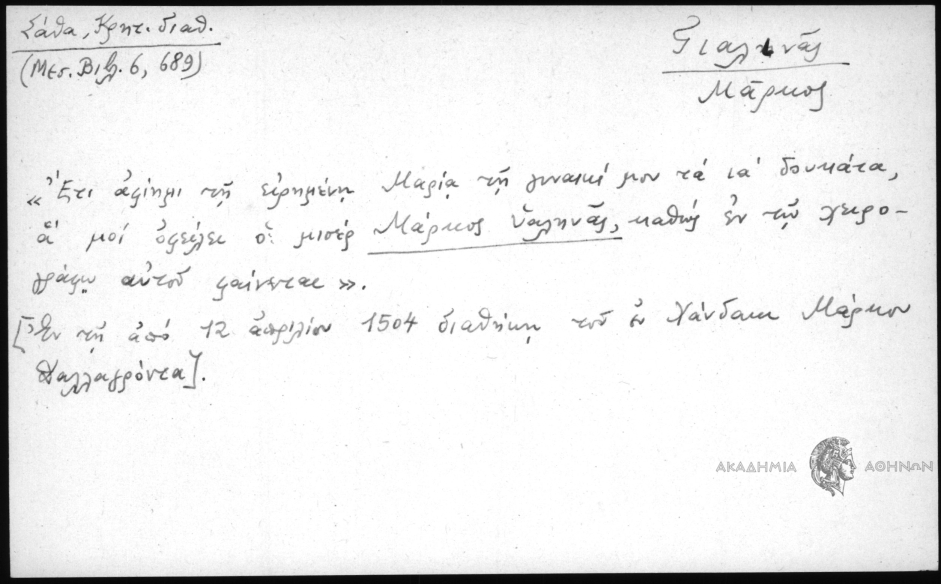 Σάθα, Κρητ. διαθ.
(Μεσ. Βιβλ. 6, 689)
Γιαλινᾶς
Μάρκος
«Ἔτι ἀφίημι τῇ εἰρημένῃ Μαρίᾳ τῇ γυναικί μου τά ια' δουκάτα,
ἅ μοί ὀφείλει ὁ μισέρ Μάρκος Ὑαληνᾶς, καθώς ἐν τῷ χειρο-
γράφῳ αὐτοῦ φαίνεται».
[Ἐν τῇ ἀπό 12 ἀπριλίου 1504 διαθήκῃ τοῦ ἐν Χάνδακι Μάρκου
Δαλλαγρόντα].
ΑΚΑΔΗΜΙΑ ΑΘΗΝΩΝ